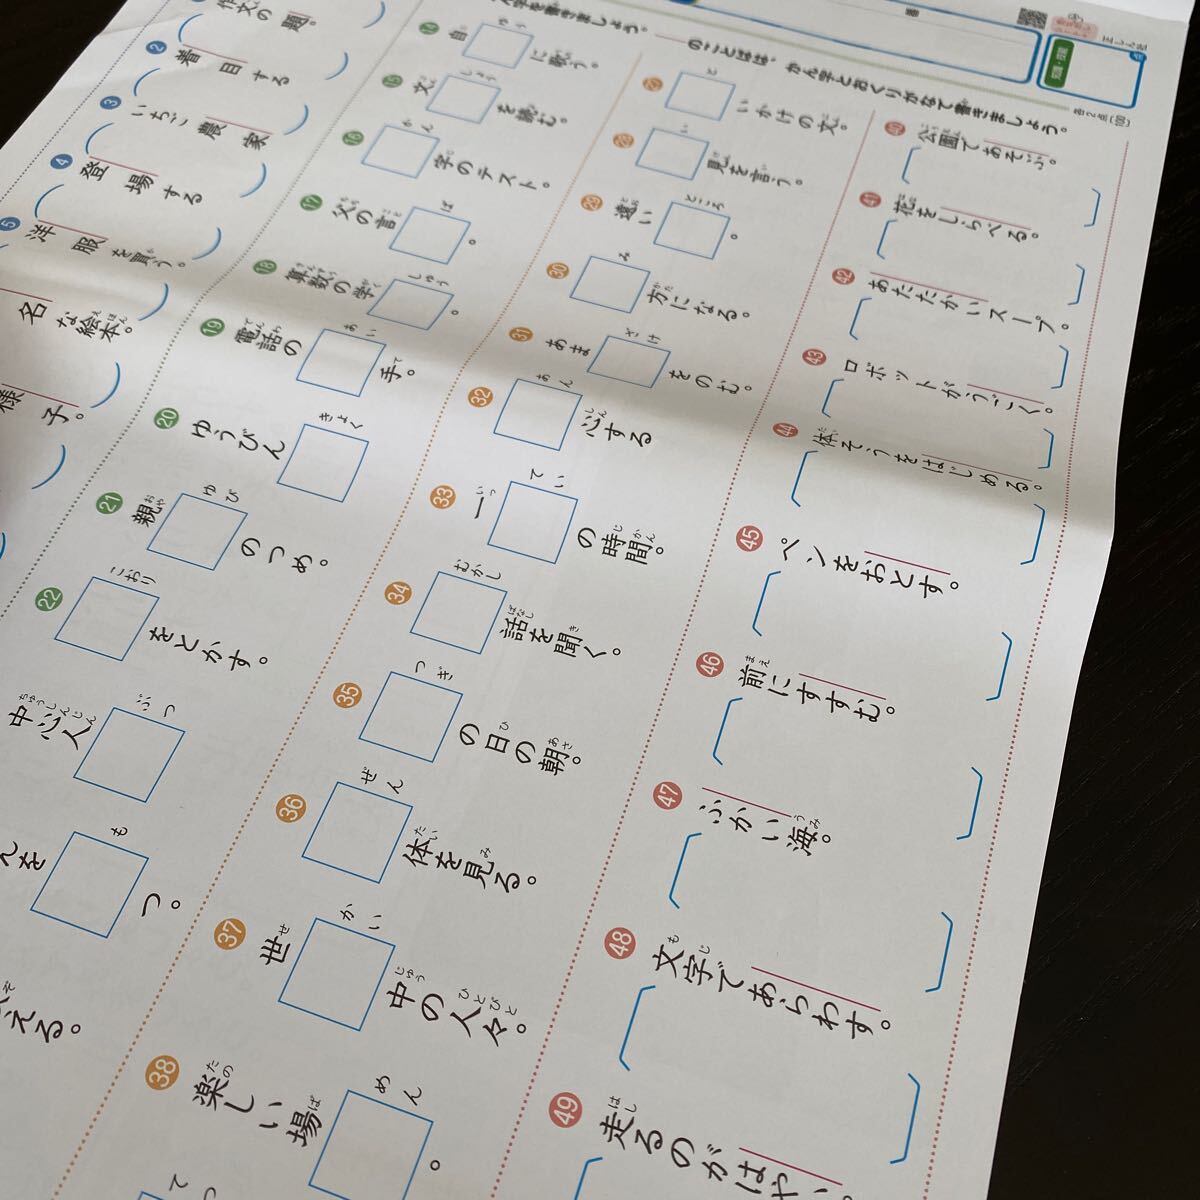 正しんぱん
知識・技能
点
各2点(100)
番
のことばは、かん字とおくりがなで書きましょう。
作文の題。
2 着目する
3 いちご農家
4 登場する
5 洋服を買う。
名な絵本。
様子。
14 自ゆうに歌う。
15 文しょうを読む。
16 かん字のテスト。
17 父の言ば。
18 算数の学しゅう。
19 電話のあい手。
20 ゆうびんきょく
21 親ゆびのつめ。
22 こおりをとかす。
中心人ぶつ
えをもつ。
える。
27 といかけの文。
28 い見を言う。
29 遠いところ。
30 み方になる。
31 あまざけをのむ。
32 あん心する
33 一ていの時間。
34 むかし話を聞く。
35 つぎの日の朝。
36 ぜん体を見る。
37 世かい中の人々。
38 楽しい場めん。
てつ
40 公園であそぶ。
41 花をしらべる。
42 あたたかいスープ。
43 ロボットがうごく。
44 体そうをはじめる。
45 ペンをおとす。
46 前にすすむ。
47 ふかい海。
48 文字であらわす。
49 走るのがはやい